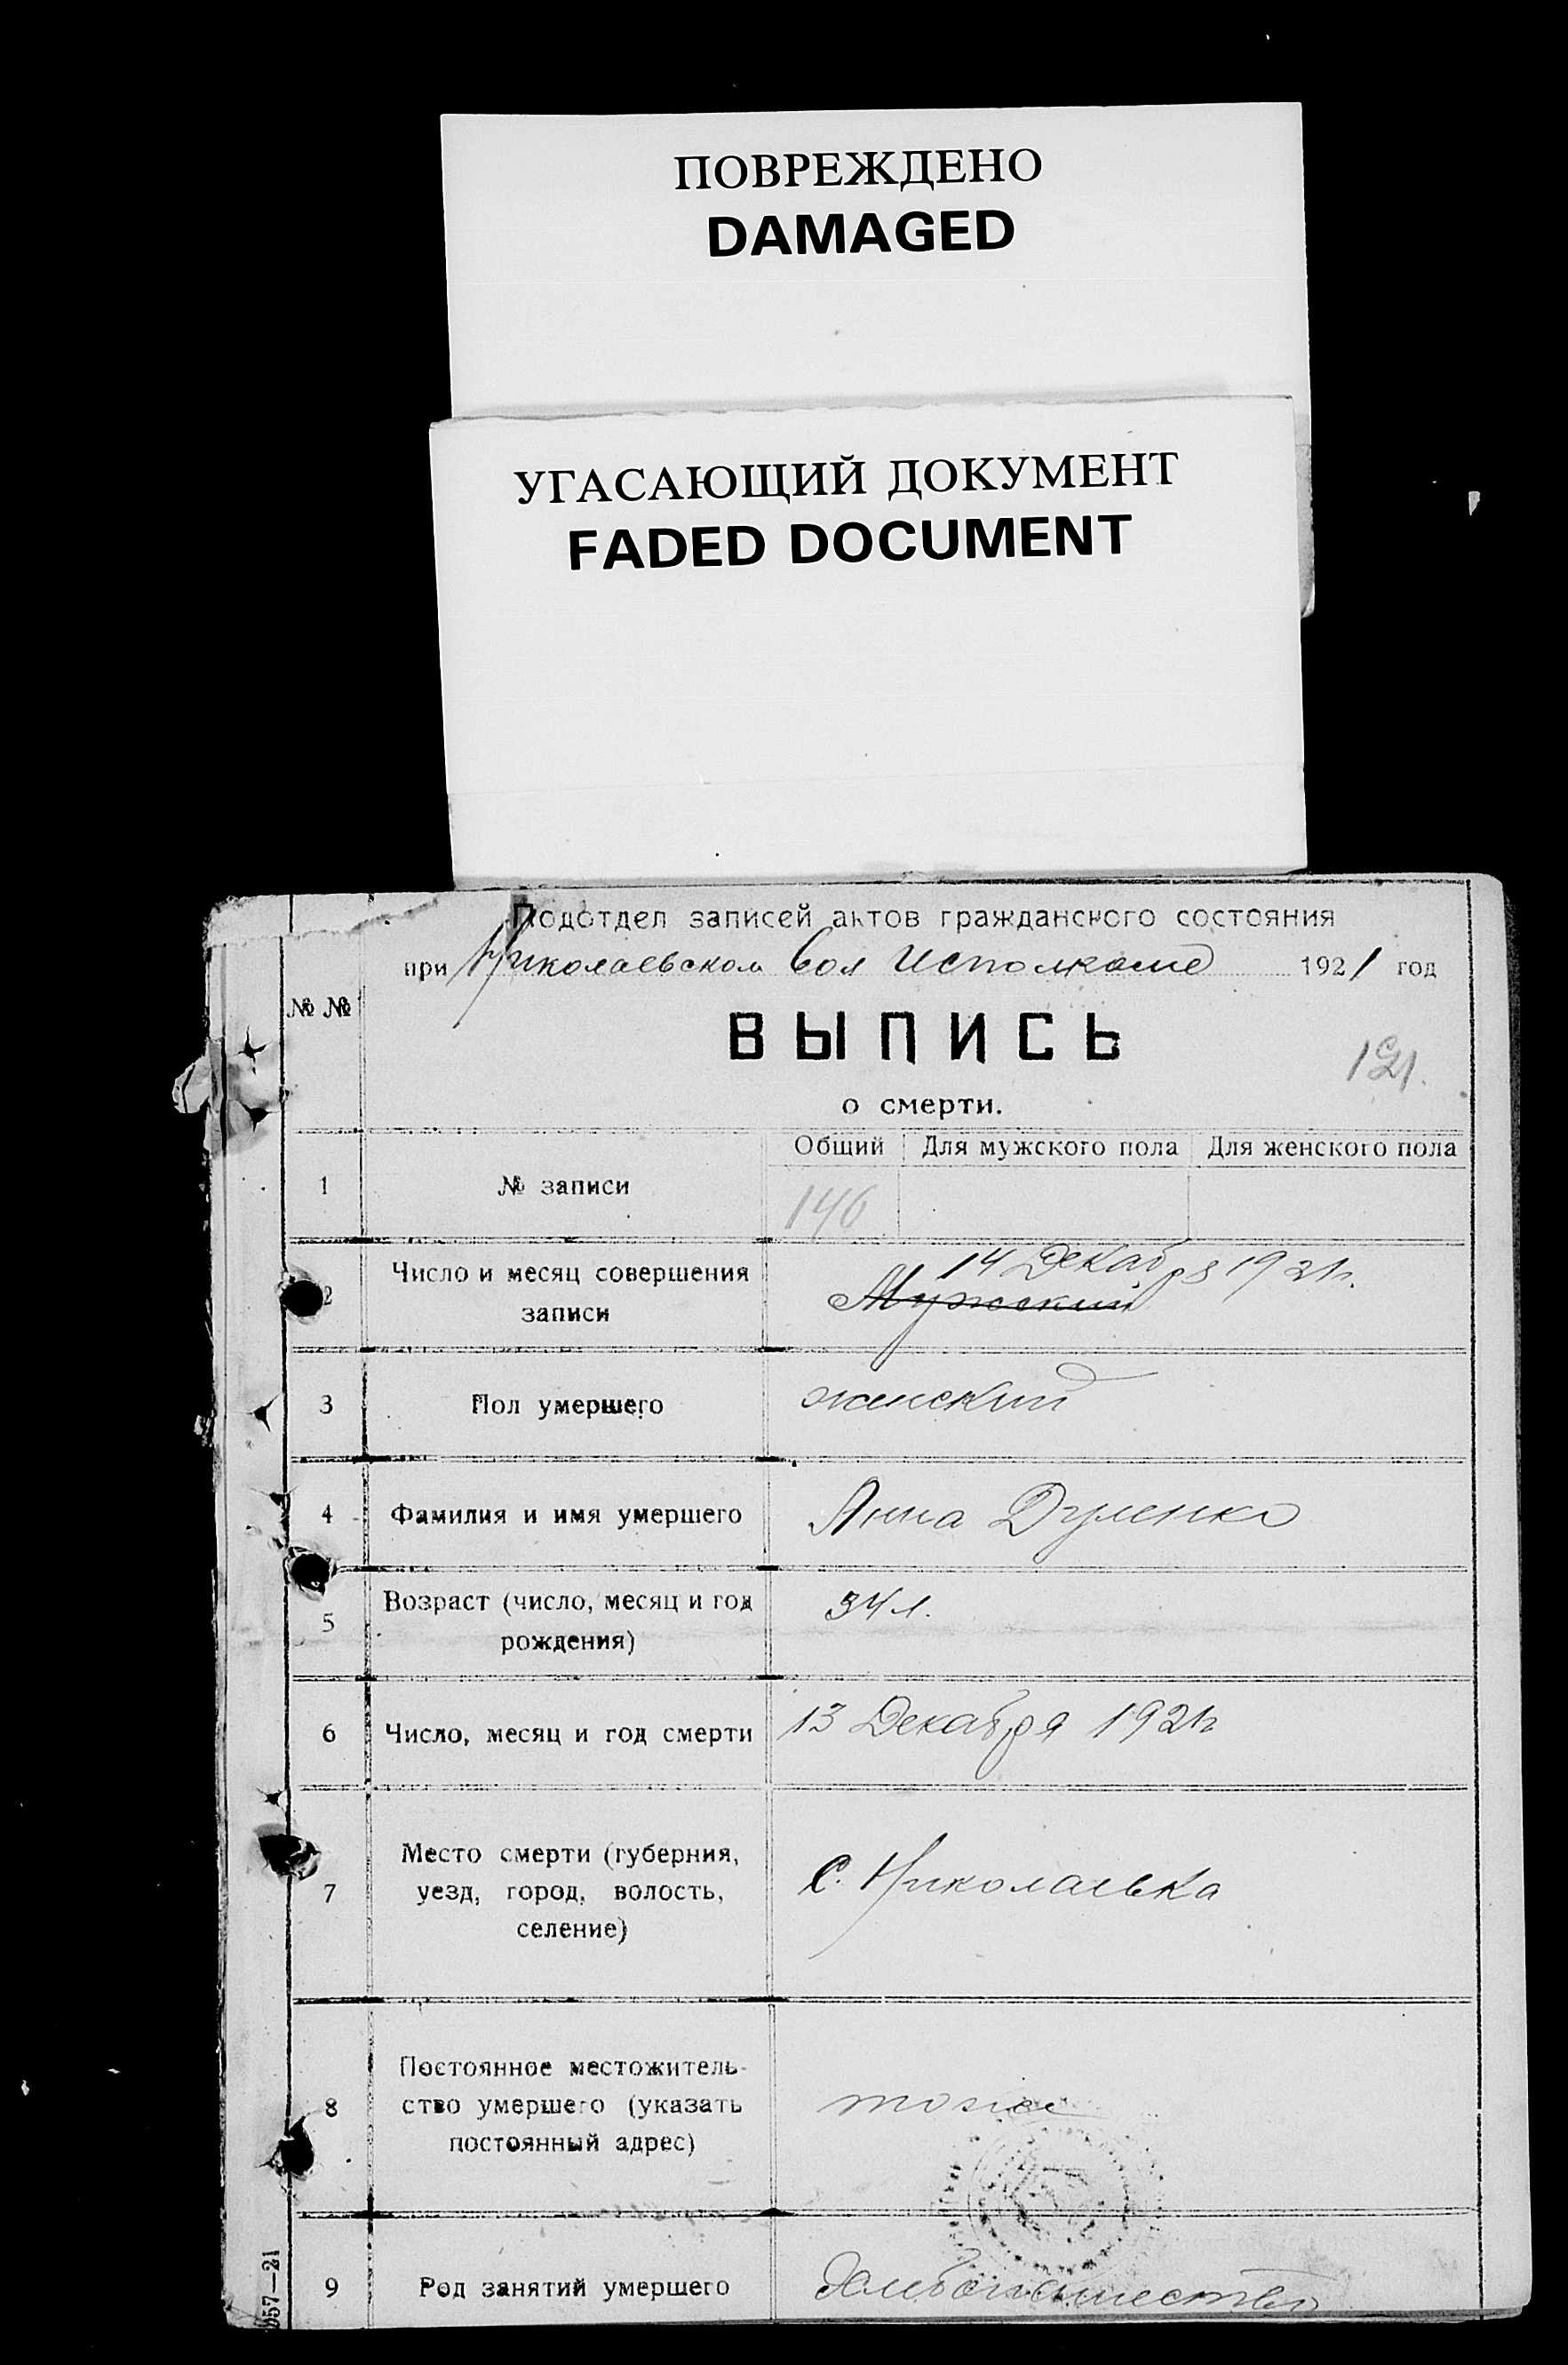 ПОВРЕЖДЕНО
DAMAGED
УГАСАЮЩИЙ ДОКУМЕНТ
FADED DOCUMENT
Подотдел записей актов гражданского состояния
при Николаевском Вол Исполкоме 1921 год
№ №
ВЫПИСЬ
121.
о смерти.
Общий Для мужского пола Для женского пола
1 № записи 146
2 Число и месяц совершения записи 14 Декабря 1921г.
Мужский
3 Пол умершего женский
4 Фамилия и имя умершего Анна Дуленко
5 Возраст (число, месяц и год рождения) 34 л.
6 Число, месяц и год смерти 13 Декабря 1921г
7 Место смерти (губерния, уезд, город, волость, селение) С. Николаевка
8 Постоянное местожительство умершего (указать постоянный адрес) тоже
9 Род занятий умершего
057—21